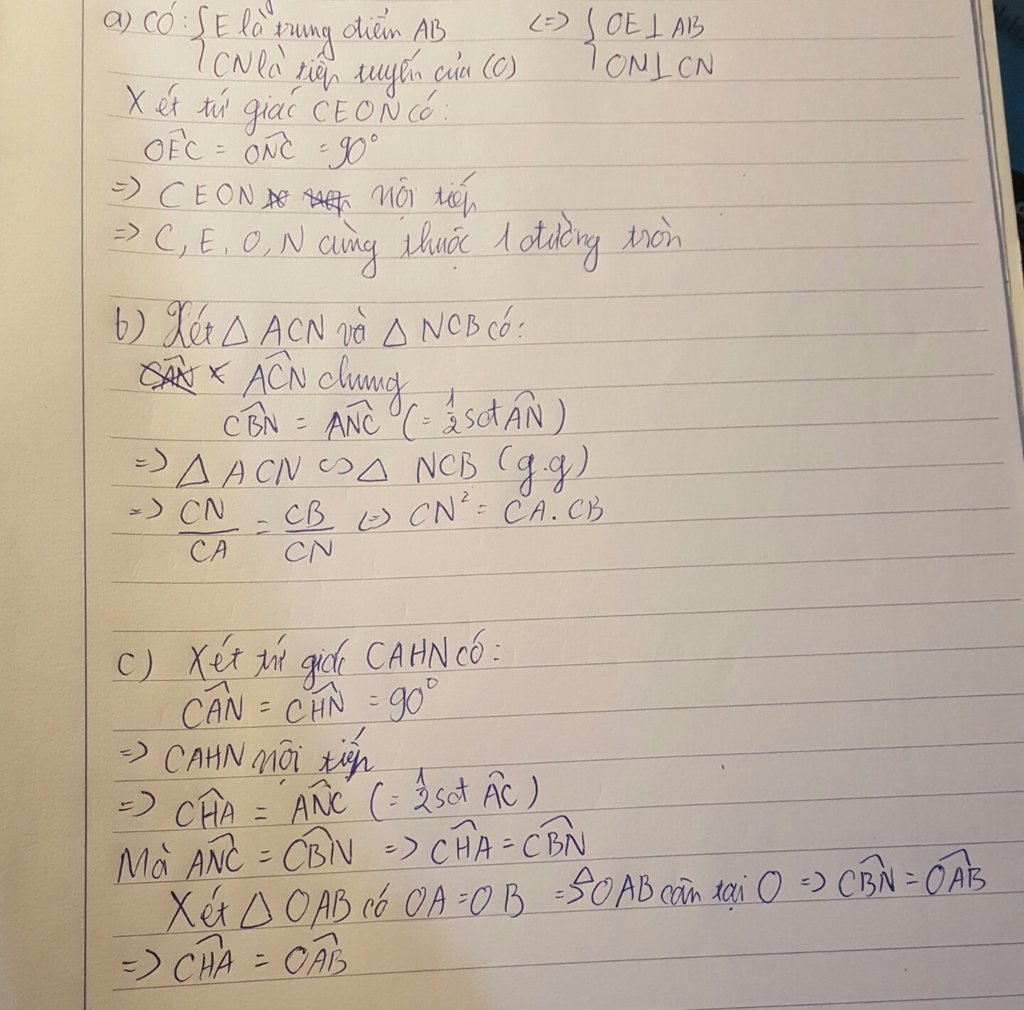 a) CÓ: { E là trung điểm AB <=> { OE ⊥ AB
CN là tiếp tuyến của (O) ON ⊥ CN
Xét tứ giác CEON có:
OÊC = ON̂C = 90°
=> CEON nội tiếp
=> C, E, O, N cùng thuộc 1 đường tròn
b) Xét △ ACN và △ NCB có:
AĈN chung
CB̂N = AN̂C (= 1/2 sđ AN̂)
=> △ ACN ∽ △ NCB (g.g)
=> CN/CA = CB/CN <=> CN² = CA.CB
c) Xét tứ giác CAHN có:
CÂN = CĤN = 90°
=> CAHN nội tiếp
=> CĤA = AN̂C (= 1/2 sđ AĈ)
Mà AN̂C = CB̂N => CĤA = CB̂N
Xét △ OAB có OA = OB => △OAB cân tại O => CB̂N = OÂB
=> CĤA = OÂB